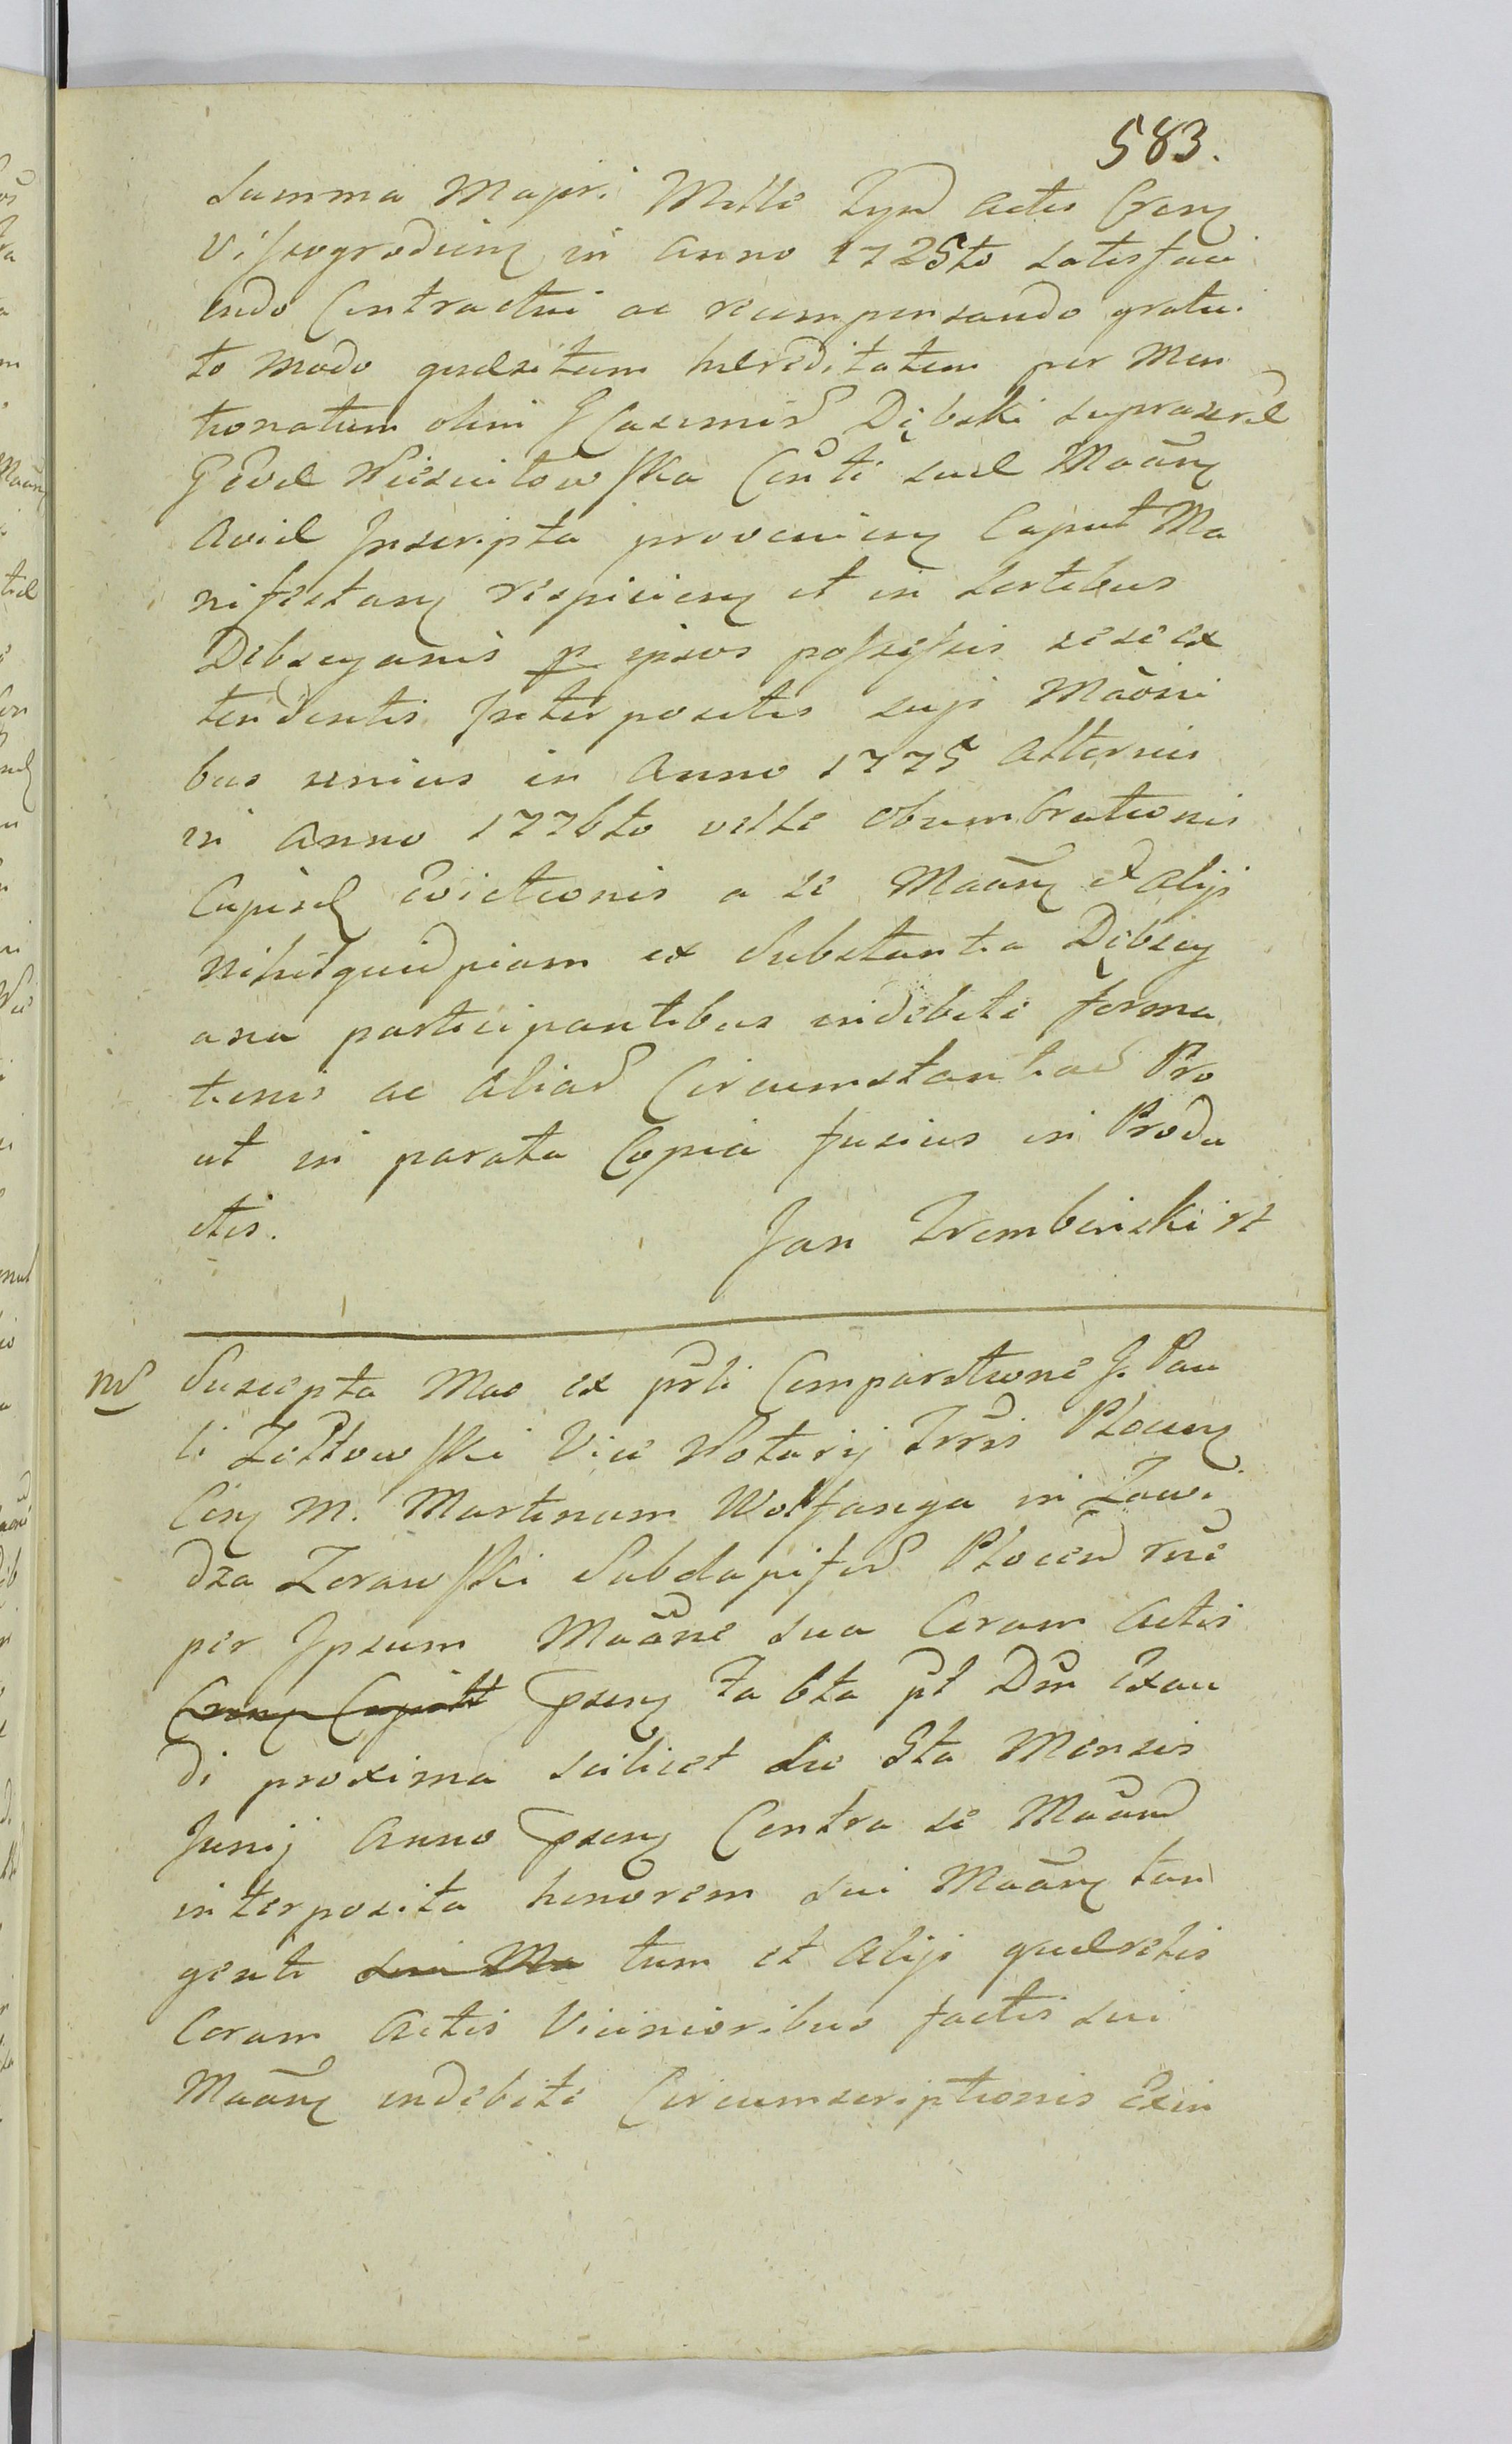 583.
Summa Majori Mille Tynf Actis Cren
Vissogrodien in Anno 1725to satisfaci
endo Contractui ac recompensando gratui
to modo quaesitam haereditatem per Men
tionatum olim G Casimir Dębski supra
Gdae Wiescitowska Con ti suae Maan
aviae Inscripta provenien Caput Ma
nifestan respicien et in Sortibus
Debscyanis p ipsos possessis sese ex
tendentis Interpositis suji Maoni
bus unius in Anno 1775 Alternis
in Anno 1776to velle obumbrationis
Evictionis a se Maan et alijs
nihil quidpiam ex Substantia Dębscy
ana participantibus indebite forma
tionis ac aliad Circumstantiad Pro
ut in parata Copia fusius in Produ
ctis.
Jan Trembinski rt
Suscepta Mao ex prti Comparitione G. Pau
li Zołtowski Vice Notarij Trris Plocen
Cen M. Martinum Wolfanga in Zawi
dza Zorawski Subdapifer Plocen rne
per Ipsum Maane sua Coram Actis
Cren Capitt psen Fa 6ta pt Dm Exau
di proxima scilicet die 9ta Mensis
Junij Anno psen Contra se Maand
interposita honorem sui Maan tan
genti sui Ma tum et alijs quaerelis
Coram Actis Vicinioribus factis sui
Maan indebite Circumscriptionis Exin